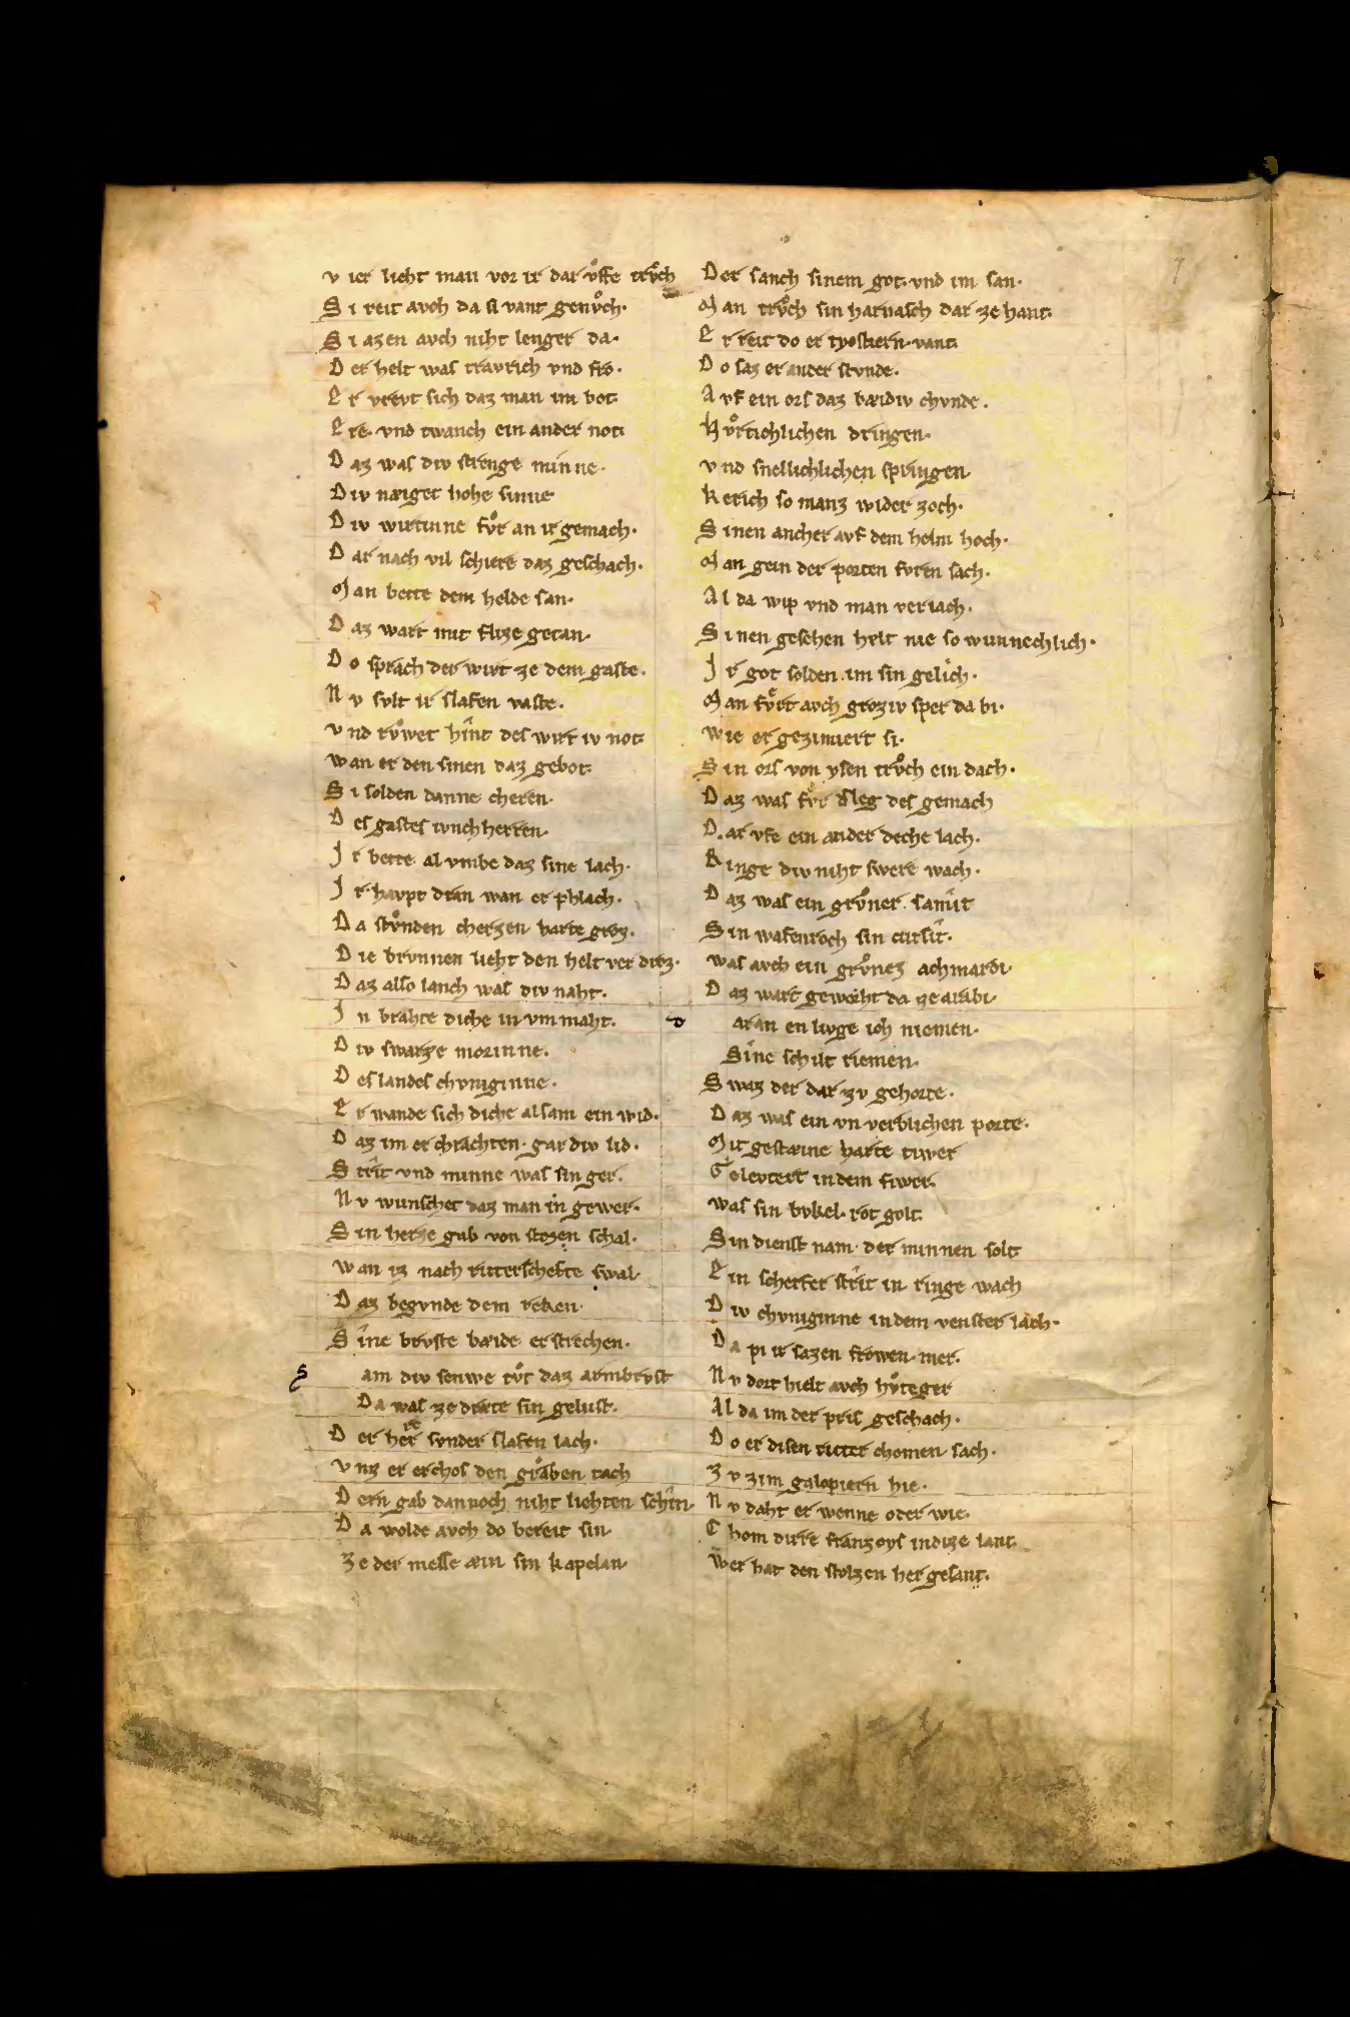 v ier lieht man vor ir dar vͦffe trvͦch
S i reit avch da si vant genvͦch·
S i azen avch niht lenger da·
D er helt was travrich vnd fro·
E r vrevt sich daz man im bot
E re· vnd twanch ein ander not
D az was div strenge minne·
D iv næiget hohe sinne
D iv wirtinne fvͦr an ir gemach·
D ar nach vil schiere daz geschach·
M an bette dem helde san·
D az wart mit flize getan·
D o sprach der wirt ze dem gaste·
N v svlt ir slafen vaste·
v nd rvͦwet hînt des wirt iv not
w an er den sinen daz gebot
S i solden danne cheren·
D es gastes ivnchherren·
J r bette al vmbe daz sine lach·
J r havpt dran wan er phlach·
D a stvͦnden cherzen harte groz·
D ie brvnnen lieht den helt ver droz·
D az also lanch was div naht·
J n brahte diche in vmmaht·
D iv swarze morinne·
D es landes chvniginne·
E r wande sich diche alsam ein wid·
D az im er chrachten· gar div lid·
S trît vnd minne was sin ger·
N v wunschet daz man in gewer·
S in herze gab von stozen schal·
w an iz nach ritterschefte swal
D az begvnde dem reken·
S îne brvste bæide er strechen·
S am div senwe tvͦt daz armbrvst
D a was ze dræte sin gelust·
D er herre svnder slafen lach·
v nz er erchos den graben tach
D ern gab dannoch niht liehten schîn·
D a wolde avch do bereit sin
Z e der messe æin sin kapelan
D er sanch sinem got· vnd im san·
M an trvͦch sin harnasch dar ze hant
E r reit do er tyostiern vant
D o saz er ander stvnde·
A vf ein ors daz bæidiv chvnde·
H vͦrtichlichen dringen·
v nd snellichlichen springen
K erich so manz wider zoch·
S inen ancher avf dem helm hoch·
M an gein der porten fvren sach·
A l da wip vnd man veriach·
S i nen gesehen helt nie so wunnechlich·
J r got solden im sin gelîch·
M an fvͦrt avch groziv sper da bi·
w ie er gezimiert si·
S in ors von ysen trvͦch ein dach·
D az was fvͤr sleg des gemach
D ar vfe ein ander deche lach·
R inge div niht swere wach·
D az was ein grvͦner samît
S in wafenroch sin cursît·
was avch ein grvͦnez achmardi
D az wart geworht da ze arabi
D aran en livge ich niemen·
Sîne schilt riemen·
S waz der dar zv gehorte·
D az was ein vn verblichen porte·
M it gestæine harte tiwer
G elevtert in dem fiwer
was sin bvkel· rot golt
S in dienst nam· der minnen solt
E in scherfer strît in ringe wach
D iv chvniginne in dem venster lach·
D a pi ir sazen frowen mer·
N v dort hielt avch hvͦteger
Al da im der pris geschach·
D o er disen ritter chomen sach·
Z v zim galopiern hie·
N v daht er wenne oder wie·
C hom dirre franzoys in dize lant
Wer hat den stolzen her gesant·